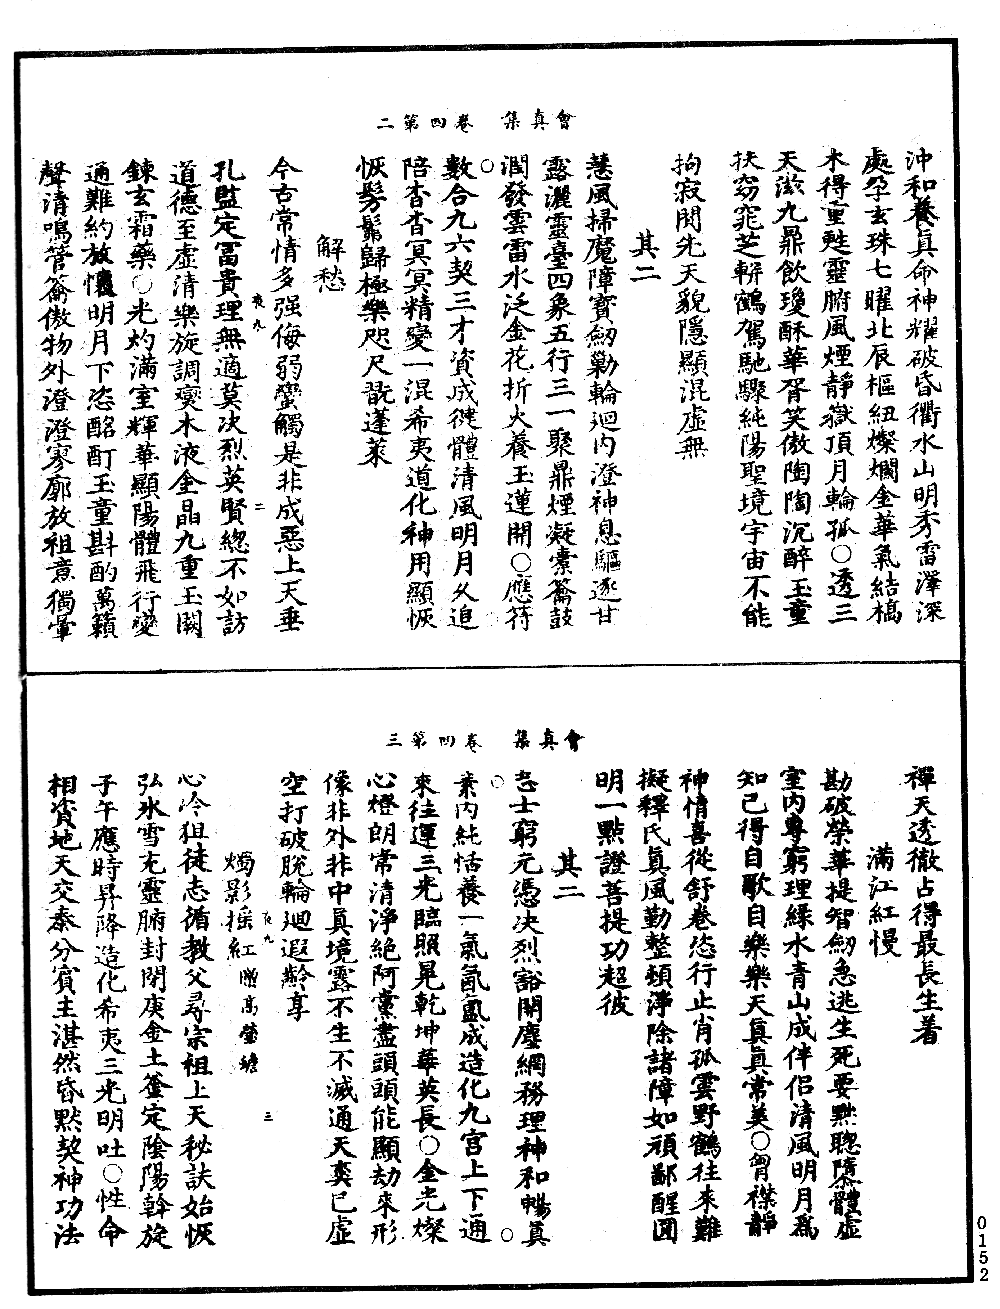 會真集　卷四第二
沖和養真命神耀破昏衢水山明秀雷澤深
處孕玄珠七曜北辰樞紐燦爛金華氣結槁
木得重甦靈腑風煙靜嶽頂月輪孤〇透三
天滋九鼎飲瓊酥華胥笑傲陶陶沉醉玉童
扶窈窕芝軿鶴駕馳驟純陽聖境宇宙不能
拘寂閴先天貌隱顯混虛無
其二
慧風掃魔障寶劒勦輪迴內澄神息驅逐甘
露灑靈臺四象五行三一聚鼎煙凝橐籥鼓
潤發雲雷水泛金花折火養玉蓮開〇應符
數合九六契三才資成健體清風明月久追
陪杳杳冥冥精變一混希夷道化神用顯恢
恢髣髴歸極樂咫尺翫蓬萊
解愁
今古常情多强侮弱蠻觸是非成惡上天垂
孔監定冨貴理無適莫决烈英賢緫不如訪
夜九　二
道德至虛清樂旋調燮木液金晶九重玉闕
鍊玄霜藥〇光灼滿室輝華顯陽體飛行變
通難約放懷明月下恣酩酊玉童斟酌萬籟
聲清鳴管籥傲物外澄澄寥廓放祖意獨掌
會真集　卷四第三
禪天透徹占得最長生着
滿江紅慢
勘破榮華提智劒急逃生死要㸃聰隳體虛
室內專窮理緑水青山成伴侣清風明月為
知己得自歌自樂樂天真真常美〇胷襟靜
神情喜從舒卷恣行止肖孤雲野鶴往來難
擬釋氏真風勤整頓淨除諸障如頑鄙醒圓
明一點證菩提功超彼
其二
志士窮元憑决烈豁開塵網務理神和暢真
素內純恬養一氣氤氳成造化九宫上下通
來往運三光臨照晃乾坤華英長〇金光燦
心燈朗常清淨絕阿黨盡頭頭能顯劫來形
像非外非中真境露不生不滅通天爽已虛
空打破脫輪迴遐齡享
夜九　三
燭影摇紅　贈高瑩蟾
心冷狙徒志循教父尋宗祖上天秘訣始恢
弘氷雪充靈腑封閉庚金土釜定陰陽斡旋
子午應時昇降造化希夷三光明吐〇性命
相資地天交泰分賓主湛然昏默契神功法
0152